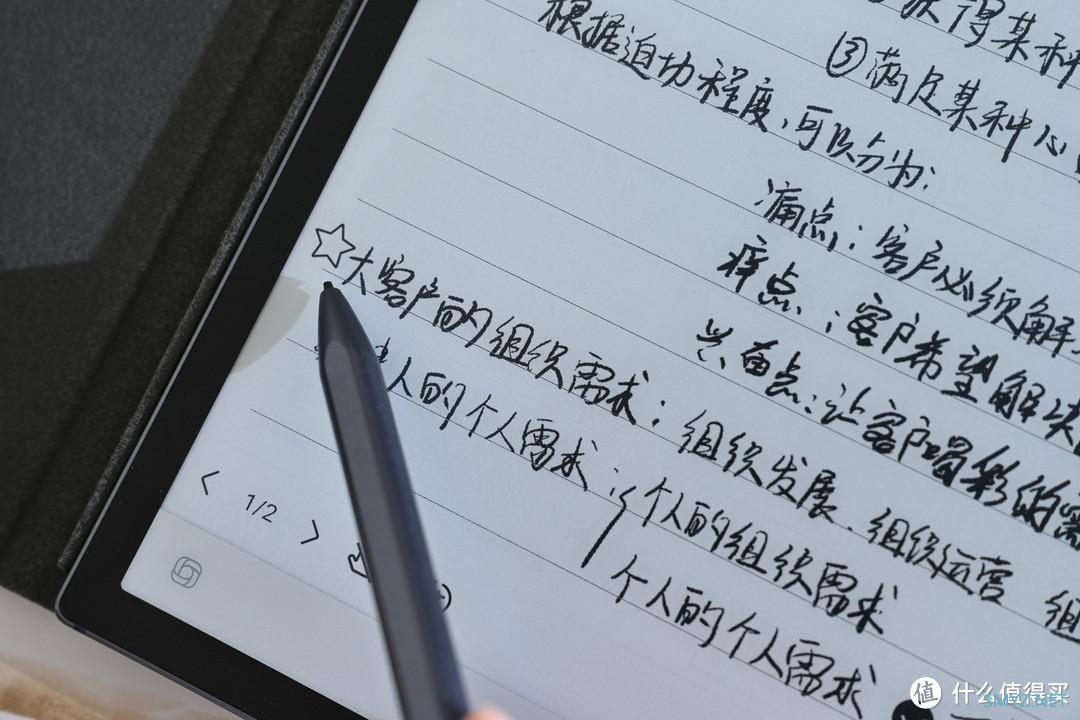 获得某种
③满足某种心
根据迫切程度,可以分为:
痛点:客户必须解
痒点:客户希望解决
兴奋点:让客户喝彩的需
☆大客户的组织需求:组织发展、组织运营 组
人的个人需求:个人的组织需求
个人的个人需求
< 1/2 >
值 什么值得买